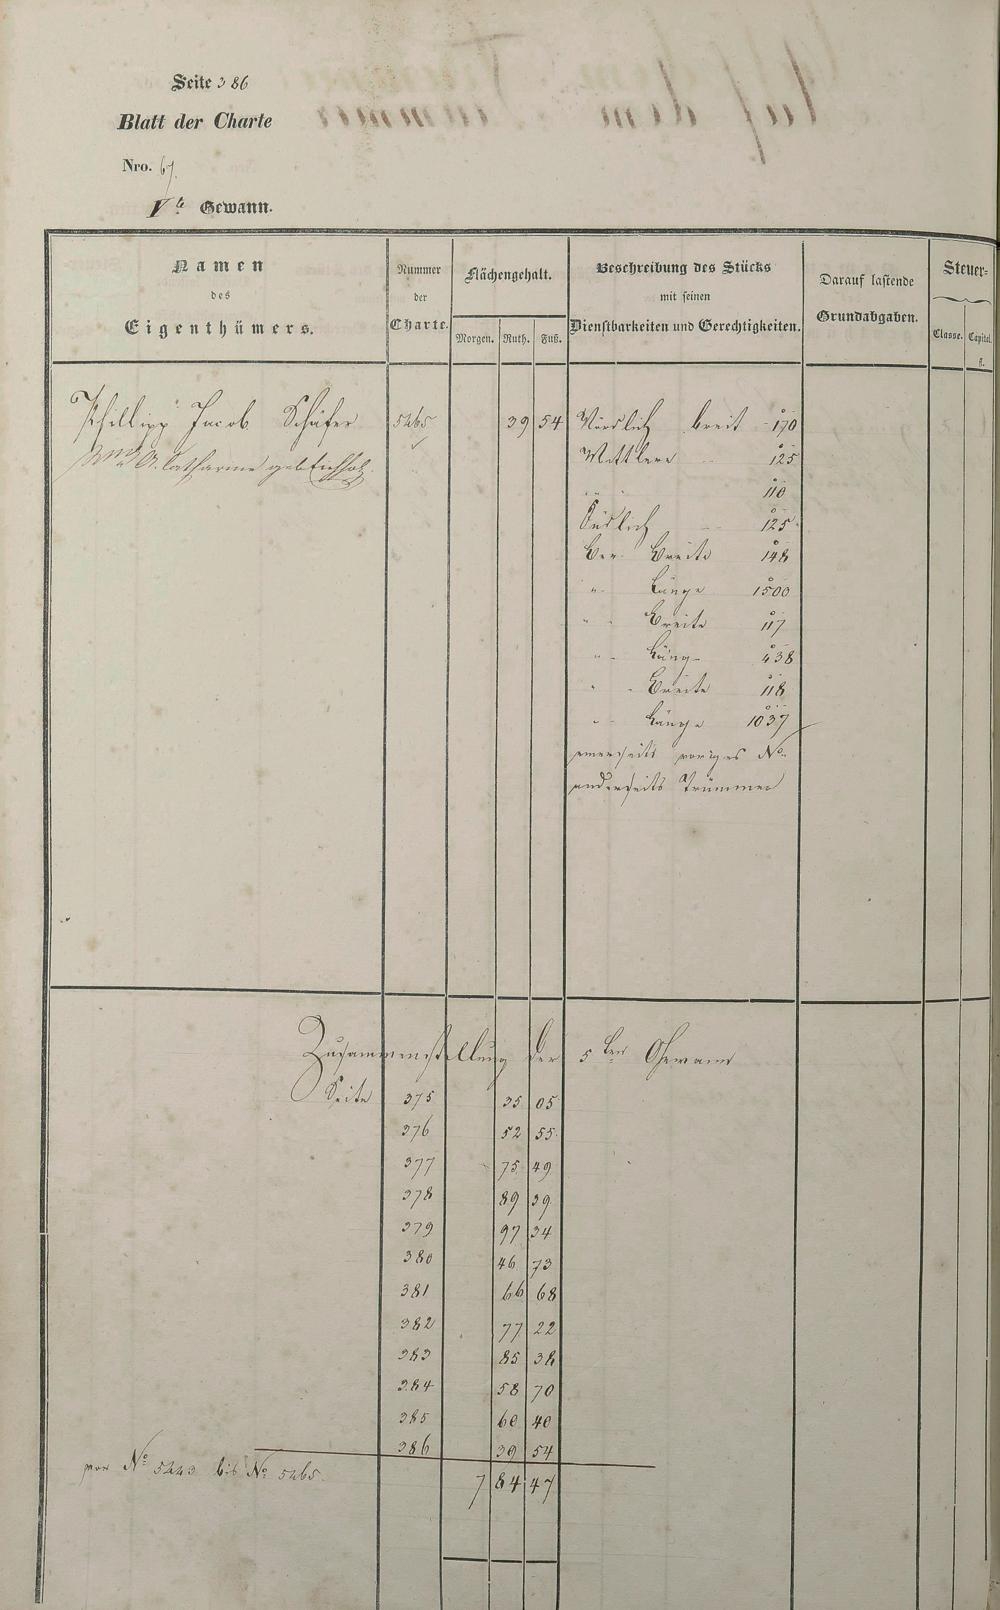 Seite 386
Blatt der Charte
Nro. 67.
V te Gewann.
Namen des Eigenthümers.
Nummer der Charte.
Flächengehalt.
Morgen. Ruth. Fuß.
Beschreibung des Stücks mit seinen Dienstbarkeiten und Gerechtigkeiten.
Darauf lastende Grundabgaben.
Steuer-
Classe. Capital. fl.
Phillipp Jacob Schäfer 5265 39 54 Nördlich breit 170
A. Catharine geb. Eichholz Mittlere 125
" " 110
Südlich 125
Ver. Breite 148
" Länge 1500
" Breite 117
" Läng 438
" Breite 118
" Länge 1037
einerseits voriges No.
anderseits Trümmer
Zusammenstellung der 5 ten Gewann
Seite 375 35 05
376 52 55
377 75 49
378 89 39
379 97 34
380 46 73
381 66 68
382 77 22
383 85 38
384 58 70
385 60 40
386 39 54
von No 5223 bis No 5265. 7 84 47